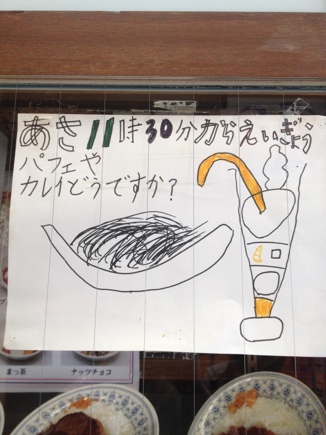 あさ11時30分からえいぎょう
パフェや
カレイどうですか?
まっ茶
ナッツチョコ